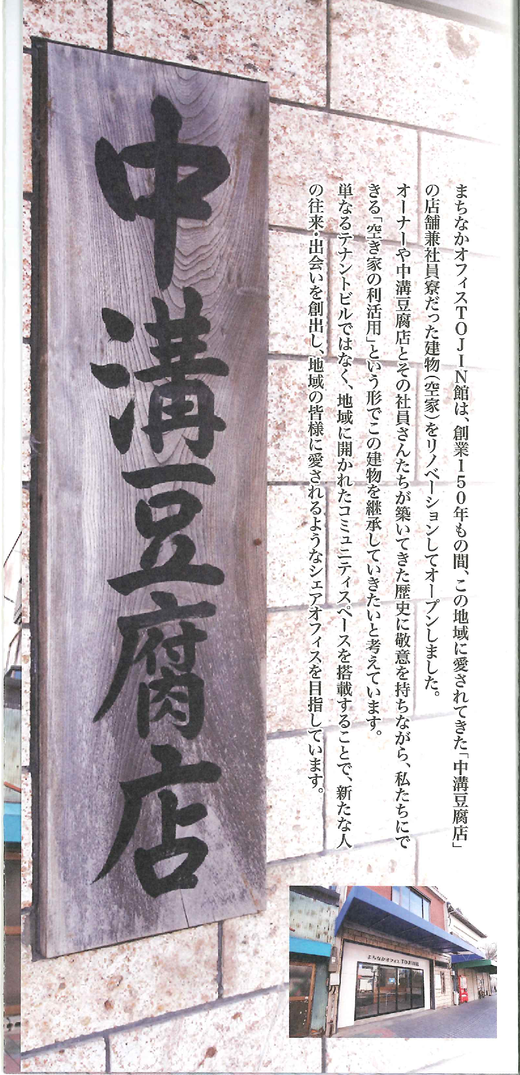 中溝豆腐店
まちなかオフィスTOJIN館は、創業150年もの間、この地域に愛されてきた「中溝豆腐店」
の店舗兼社員寮だった建物(空家)をリノベーションしてオープンしました。
オーナーや中溝豆腐店とその社員さんたちが築いてきた歴史に敬意を持ちながら、私たちにで
きる「空き家の利活用」という形でこの建物を継承していきたいと考えています。
単なるテナントビルではなく、地域に開かれたコミュニティスペースを搭載することで、新たな人
の往来・出会いを創出し、地域の皆様に愛されるようなシェアオフィスを目指しています。
まちなかオフィス TOJIN館